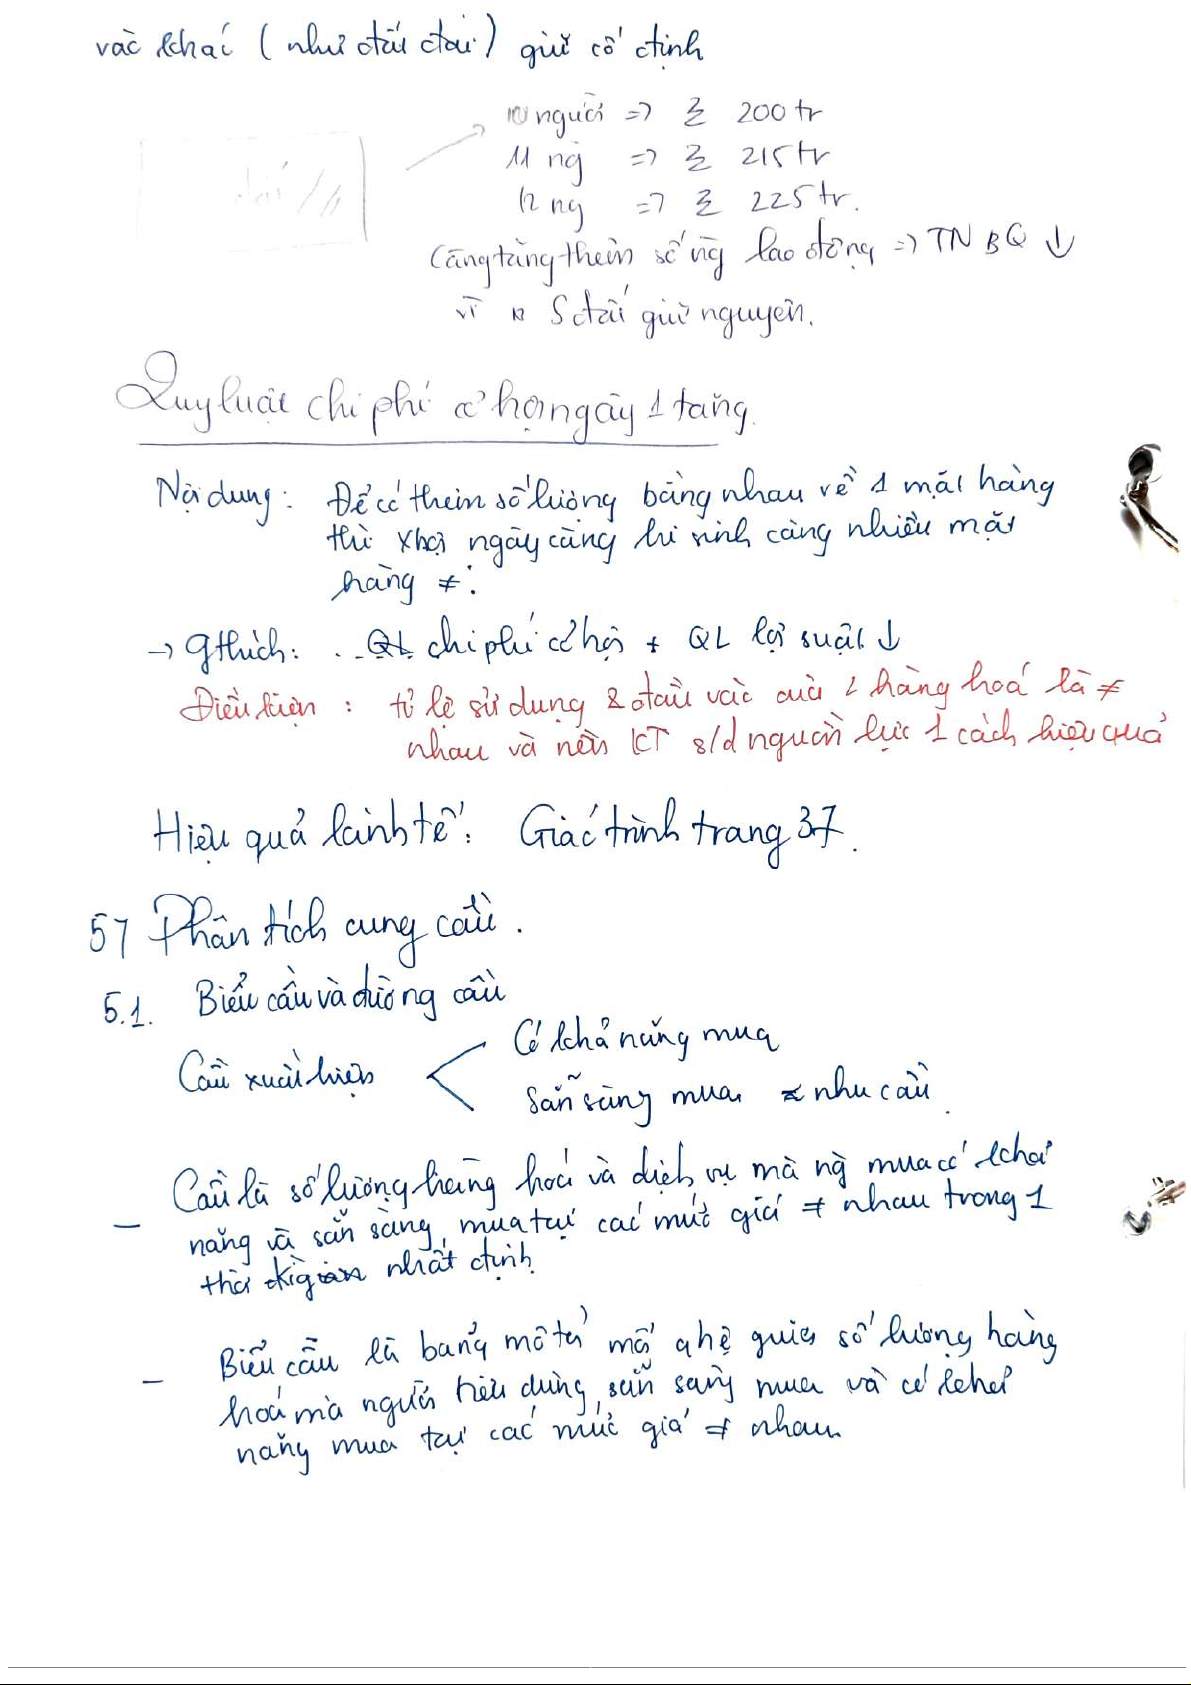 vào khác (như đất đai) giữ cố định
10 người => Σ 200 tr
11 ng => Σ 215 tr
đất
12 ng => Σ 225 tr.
Càng tăng thêm số ng lao động => TNBQ ↓
vì S đất giữ nguyên.
Quy luật chi phí cơ hội ngày 1 tăng.
Nội dung: Để có thêm số lượng bằng nhau về 1 mặt hàng
thì xhội ngày càng hi sinh càng nhiều mặt
hàng ≠.
→ gthích: QL chi phí cơ hội + QL lợi suất ↓
Điều kiện: tỉ lệ sử dụng 2 đầu vào của 2 hàng hoá là ≠
nhau và nền KT s/d nguồn lực 1 cách hiệu quả
Hiệu quả kinh tế: Giáo trình trang 37.
5/ Phân tích cung cầu.
5.1. Biểu cầu và đường cầu
Có khả năng mua
Cầu xuất hiện
Sẵn sàng mua ≈ nhu cầu.
- Cầu là số lượng hàng hoá và dịch vụ mà ng mua có khả
năng và sẵn sàng mua tại các mức giá ≠ nhau trong 1
thời gian nhất định
- Biểu cầu là bảng mô tả mối qhệ giữa số lượng hàng
hoá mà người tiêu dùng sẵn sàng mua và có khả
năng mua tại các mức giá ≠ nhau